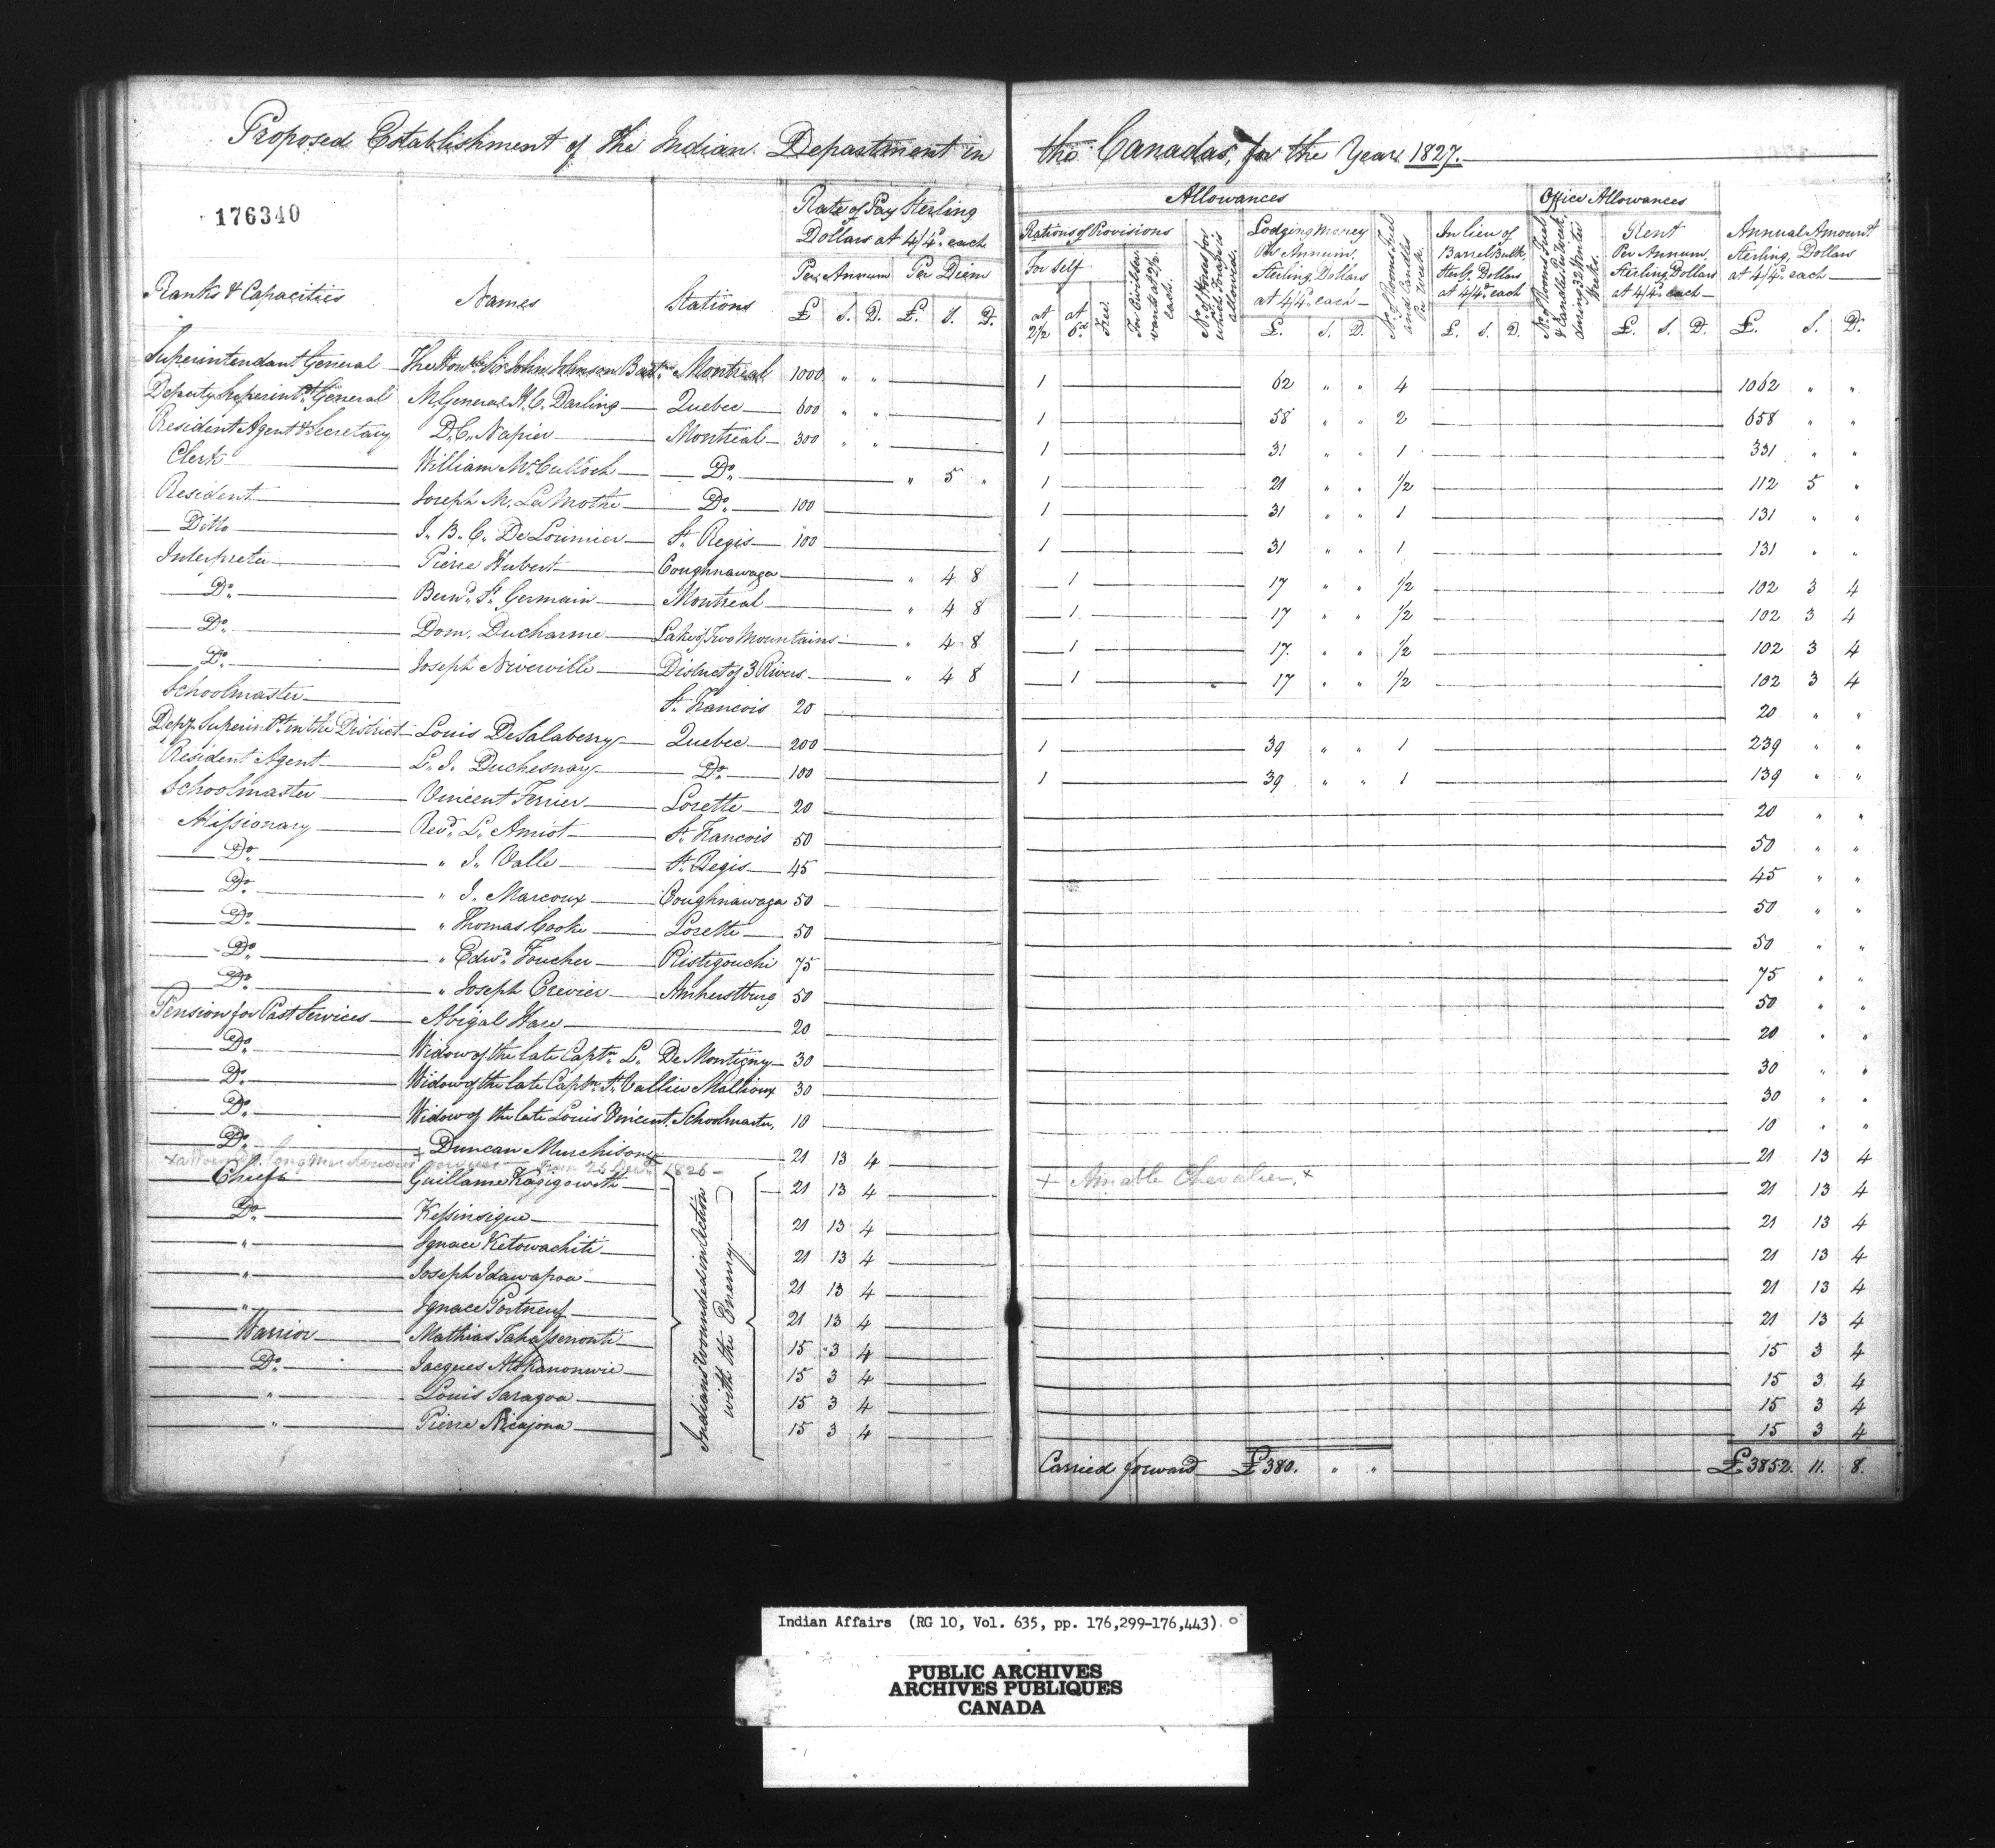 Proposed Establishment of the Indian Department in the Canadas, for the Year 1827.
176340
Ranks & Capacities Names Stations Rate of Pay Sterling Dollars at 4/4d. each Per Annum Per Diem £ S. D. £. S. D.
Allowances Office Allowances
Rations of Provisions For Self at 2½ at 6d Free
Lodging Money Per Annum, Sterling Dollars at 4/4d. each £. S. D.
No. of Rooms Fuel and Candles Per Week.
In lieu of Barrel Bulk, Sterlg. Dollars at 4/4d. each £. S. D.
Rent Per Annum, Sterling Dollars at 4/4d. each £. S. D.
Annual Amount Sterling, Dollars at 4/4d. each £. S. D.
Superintendant General The Honble. Sir John Johnson Bart. Montreal 1000 " " 1 62 " " 4 1062 " "
Deputy Superintt. General M General H. C. Darling Quebec 600 " " 1 58 " " 2 658 " "
Resident Agent & Secretary D. C. Napier Montreal 300 " " 1 31 " " 1 331 " "
Clerk William McCulloch Do. " 5 " 1 21 " " 1/2 112 5 "
Resident Joseph M. LaMothe Do. 100 1 31 " " 1 131 " "
Ditto J. B. C. De Lorimier St. Regis 100 1 31 " " 1 131 " "
Interpreter Pierre Hubert Coughnawaga " 4 8 1 17 " " 1/2 102 3 4
Do. Bernd. St. Germain Montreal " 4 8 1 17 " " 1/2 102 3 4
Do. Dom. Ducharme Lake of Two Mountains " 4 8 1 17 " " 1/2 102 3 4
Do. Joseph Niverville District of 3 Rivers " 4 8 1 17 " " 1/2 102 3 4
Schoolmaster St. Francois 20 20 " "
Depy. Superintt. in the District Louis DeSalaberry Quebec 200 1 39 " " 1 239 " "
Resident Agent L. J. Duchesnay Do. 100 1 39 " " 1 139 " "
Schoolmaster Vincent Ferrier Lorette 20 20 " "
Missionary Revd. L. Amiot St. Francois 50 50 " "
Do. " J. Valle St. Regis 45 45 " "
Do. " J. Marcoux Coughnawaga 50 50 " "
Do. " Thomas Cooke Lorette 50 50 " "
Do. " Edwd. Foucher Ristigouchi 75 75 " "
Do. " Joseph Crevier Amherstburg 50 50 " "
Pension for Past Services Abigal Hare 20 20 " "
Do. Widow of the late Captn. L. De Montigny 30 30 " "
Do. Widow of the late Captn. St. Vallier Mallioux 30 30 " "
Do. Widow of the late Louis Vincent, Schoolmaster, 10 10 " "
Do. + Duncan Murchison 21 13 4 21 13 4
from 25 Decr. 1826
+ Amable Chevalier. x
Chiefs Guillame Kagigowith 21 13 4 21 13 4
Do. Kessinsique 21 13 4 21 13 4
" Ignace Ketowachiti 21 13 4 21 13 4
" Joseph Idawapoa 21 13 4 21 13 4
" Ignace Portneuf 21 13 4 21 13 4
Warrior Mathias 15 3 4 15 3 4
Do. Jacques 15 3 4 15 3 4
" Louis Saragoa 15 3 4 15 3 4
" Pierre Nicajona 15 3 4 15 3 4
Indians wounded in Action with the Enemy
Carried forward £380. " " £3852. 11. 8.
Indian Affairs (RG 10, Vol. 635, pp. 176,299-176,443)
PUBLIC ARCHIVES
ARCHIVES PUBLIQUES
CANADA